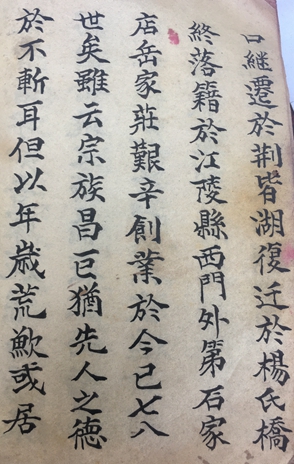 口継遷於荆皆湖復迁於楊氏橋
終落籍於江陵縣西門外第石家
店岳家莊艱辛創業於今已七八
世矣雖云宗族昌巨猶先人之德
於不斬耳但以年歲荒歉或居